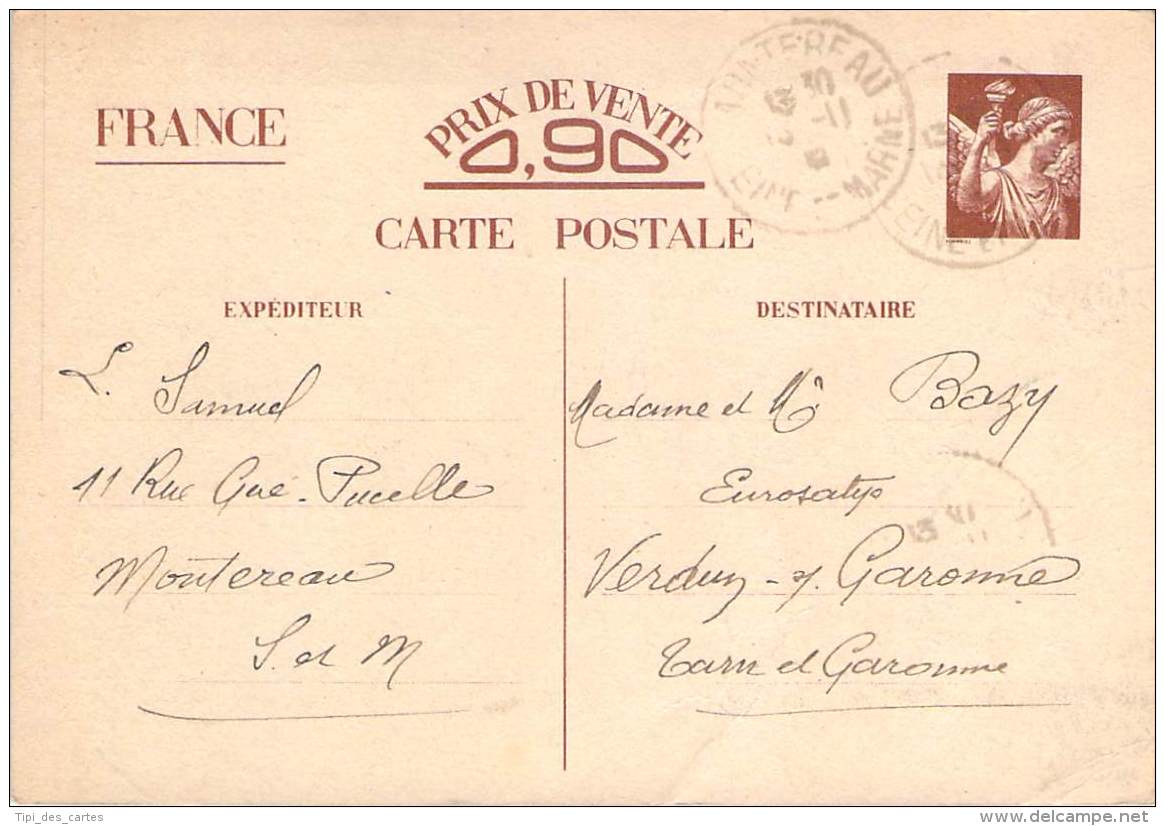 FRANCE
PRIX DE VENTE
0,90
CARTE POSTALE
TEREAU
30
-11
MARNE
EINE
EXPÉDITEUR
L. Samuel
11 Rue Gué-Pucelle
Montereau
S. et M
DESTINATAIRE
Madame et Mr Bazy
Verdun-s/ Garonne
Tarn et Garonne
Tipi_des_cartes
www.delcampe.net